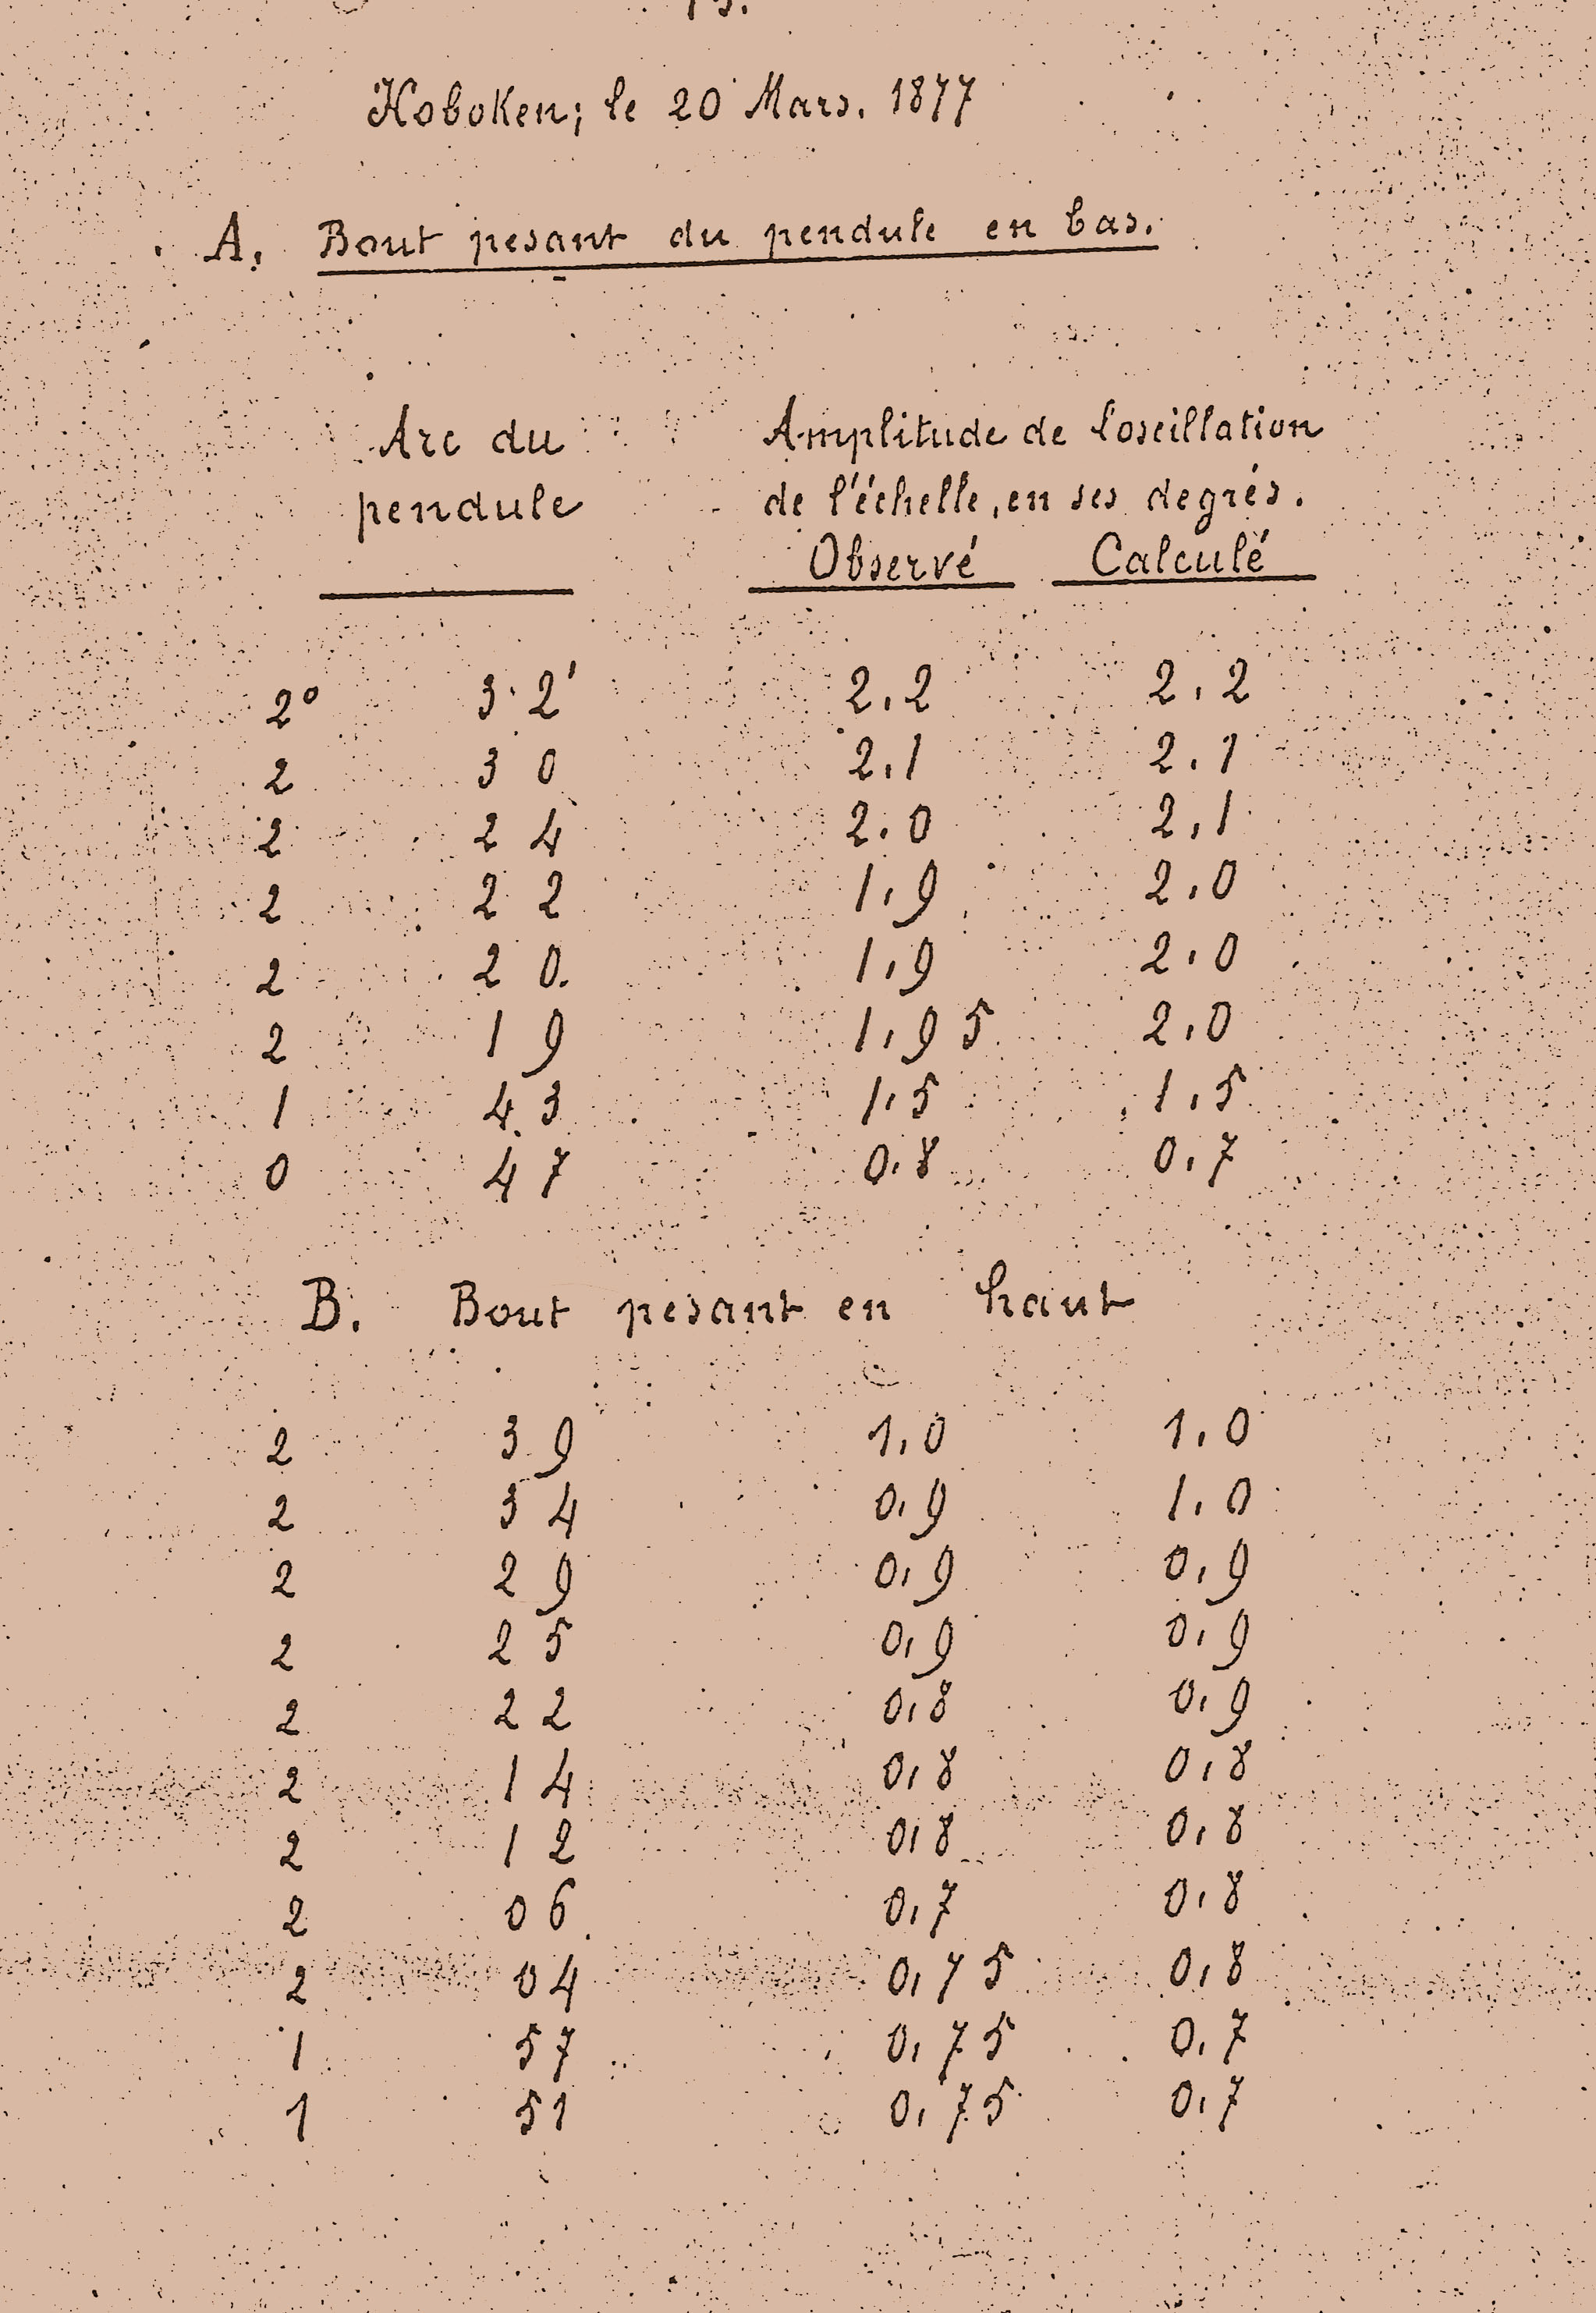 Hoboken; le 20 Mars. 1877
A. Bout pesant du pendule en bas.
Arc du pendule
Amplitude de l'oscillation
de l'échelle, en ses degrés.
Observé Calculé
2° 32' 2,2 2,2
2 30 2,1 2,1
2 24 2,0 2,1
2 22 1,9 2,0
2 20. 1,9 2,0
2 19 1,95 2,0
1 43 1,5 1,5
0 47 0,8 0,7
B. Bout pesant en haut
2 39 1,0 1,0
2 34 0,9 1,0
2 29 0,9 0,9
2 25 0,9 0,9
2 22 0,8 0,9
2 14 0,8 0,8
2 12 0,8 0,8
2 06 0,7 0,8
2 04 0,75 0,8
1 57 0,75 0,7
1 51 0,75 0,7